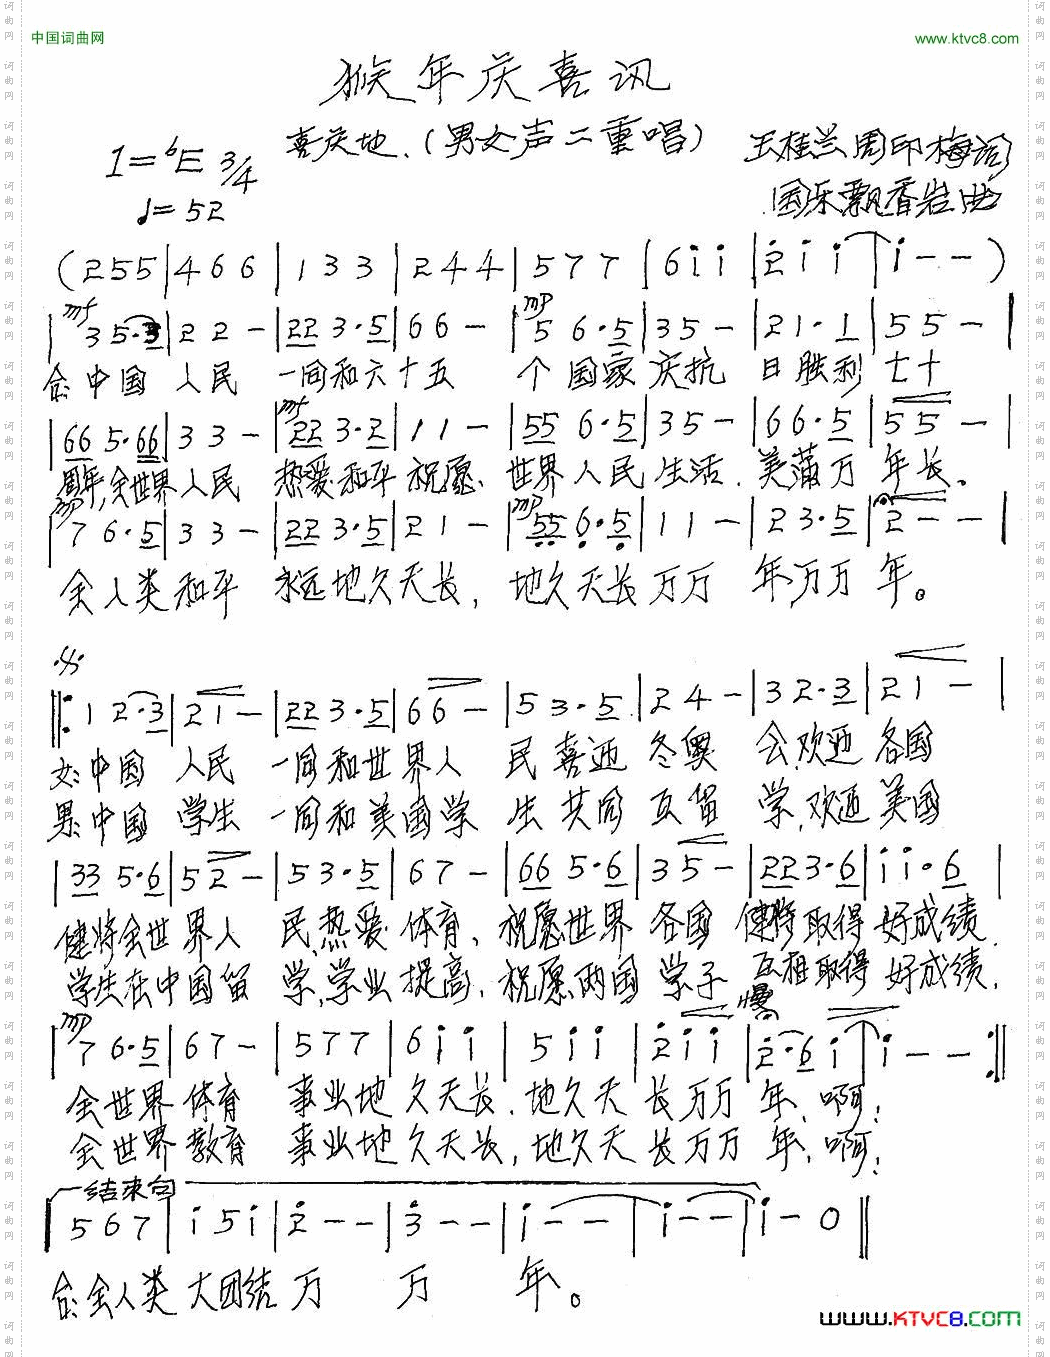 中国词曲网
www.ktvc8.com
猴年庆喜讯
喜庆地.(男女声二重唱)
王桂兰周印梅词
1=♭E 3/4
♩=52
国乐飘香岩曲
(2 5 5 | 4 6 6 | 1 3 3 | 2 4 4 | 5 7 7 | 6 i i | 2 i i | i - - )
mf mp
| 3 5·3 | 2 2 - | 22 3·5 | 6 6 - | 5 6·5 | 3 5 - | 2 1·1 | 5 5 - |
合:中国 人民 一同和六十五 个国家庆抗 日胜利 七十
mf
| 66 5·66 | 3 3 - | 22 3·2 | 1 1 - | 55 6·5 | 3 5 - | 6 6·5 | 5 5 - |
周年,全世界人民 热爱和平祝愿. 世界人民生活.美满万 年长。
mp mp
| 7 6·5 | 3 3 - | 22 3·5 | 2 1 - | 55 6·5 | 1 1 - | 2 3·5 | 2 - - |
全人类和平 永远地久天长, 地久天长万万 年,万万 年。
|: 1 2·3 | 2 1 - | 22 3·5 | 6 6 - | 5 3·5 | 2 4 - | 3 2·3 | 2 1 - |
女:中国 人民 一同和世界人 民喜迎冬奥 会,欢迎各国
男:中国 学生 一同和美国学 生共同互留 学,欢迎美国
| 33 5·6 | 5 2 - | 5 3·5 | 6 7 - | 66 5·6 | 3 5 - | 22 3·6 | i i·6 |
健将全世界人 民,热爱体育、祝愿世界各国 健将取得好成绩.
学生在中国留 学,学业提高.祝愿两国学子 互相取得好成绩.
mp 慢
| 7 6·5 | 6 7 - | 5 7 7 | 6 i i | 5 i i | 2 i i | 2·6 i | i - - :|
全世界体育 事业地久天长.地久天长万万年、啊;
全世界教育 事业地久天长,地久天长万万年、啊;
结束句
5 6 7 | i 5 i | 2 - - | 3 - - | i - - | i - - | i - 0 ‖
合:全人类大团结万 万 年。
www.KTVC8.com